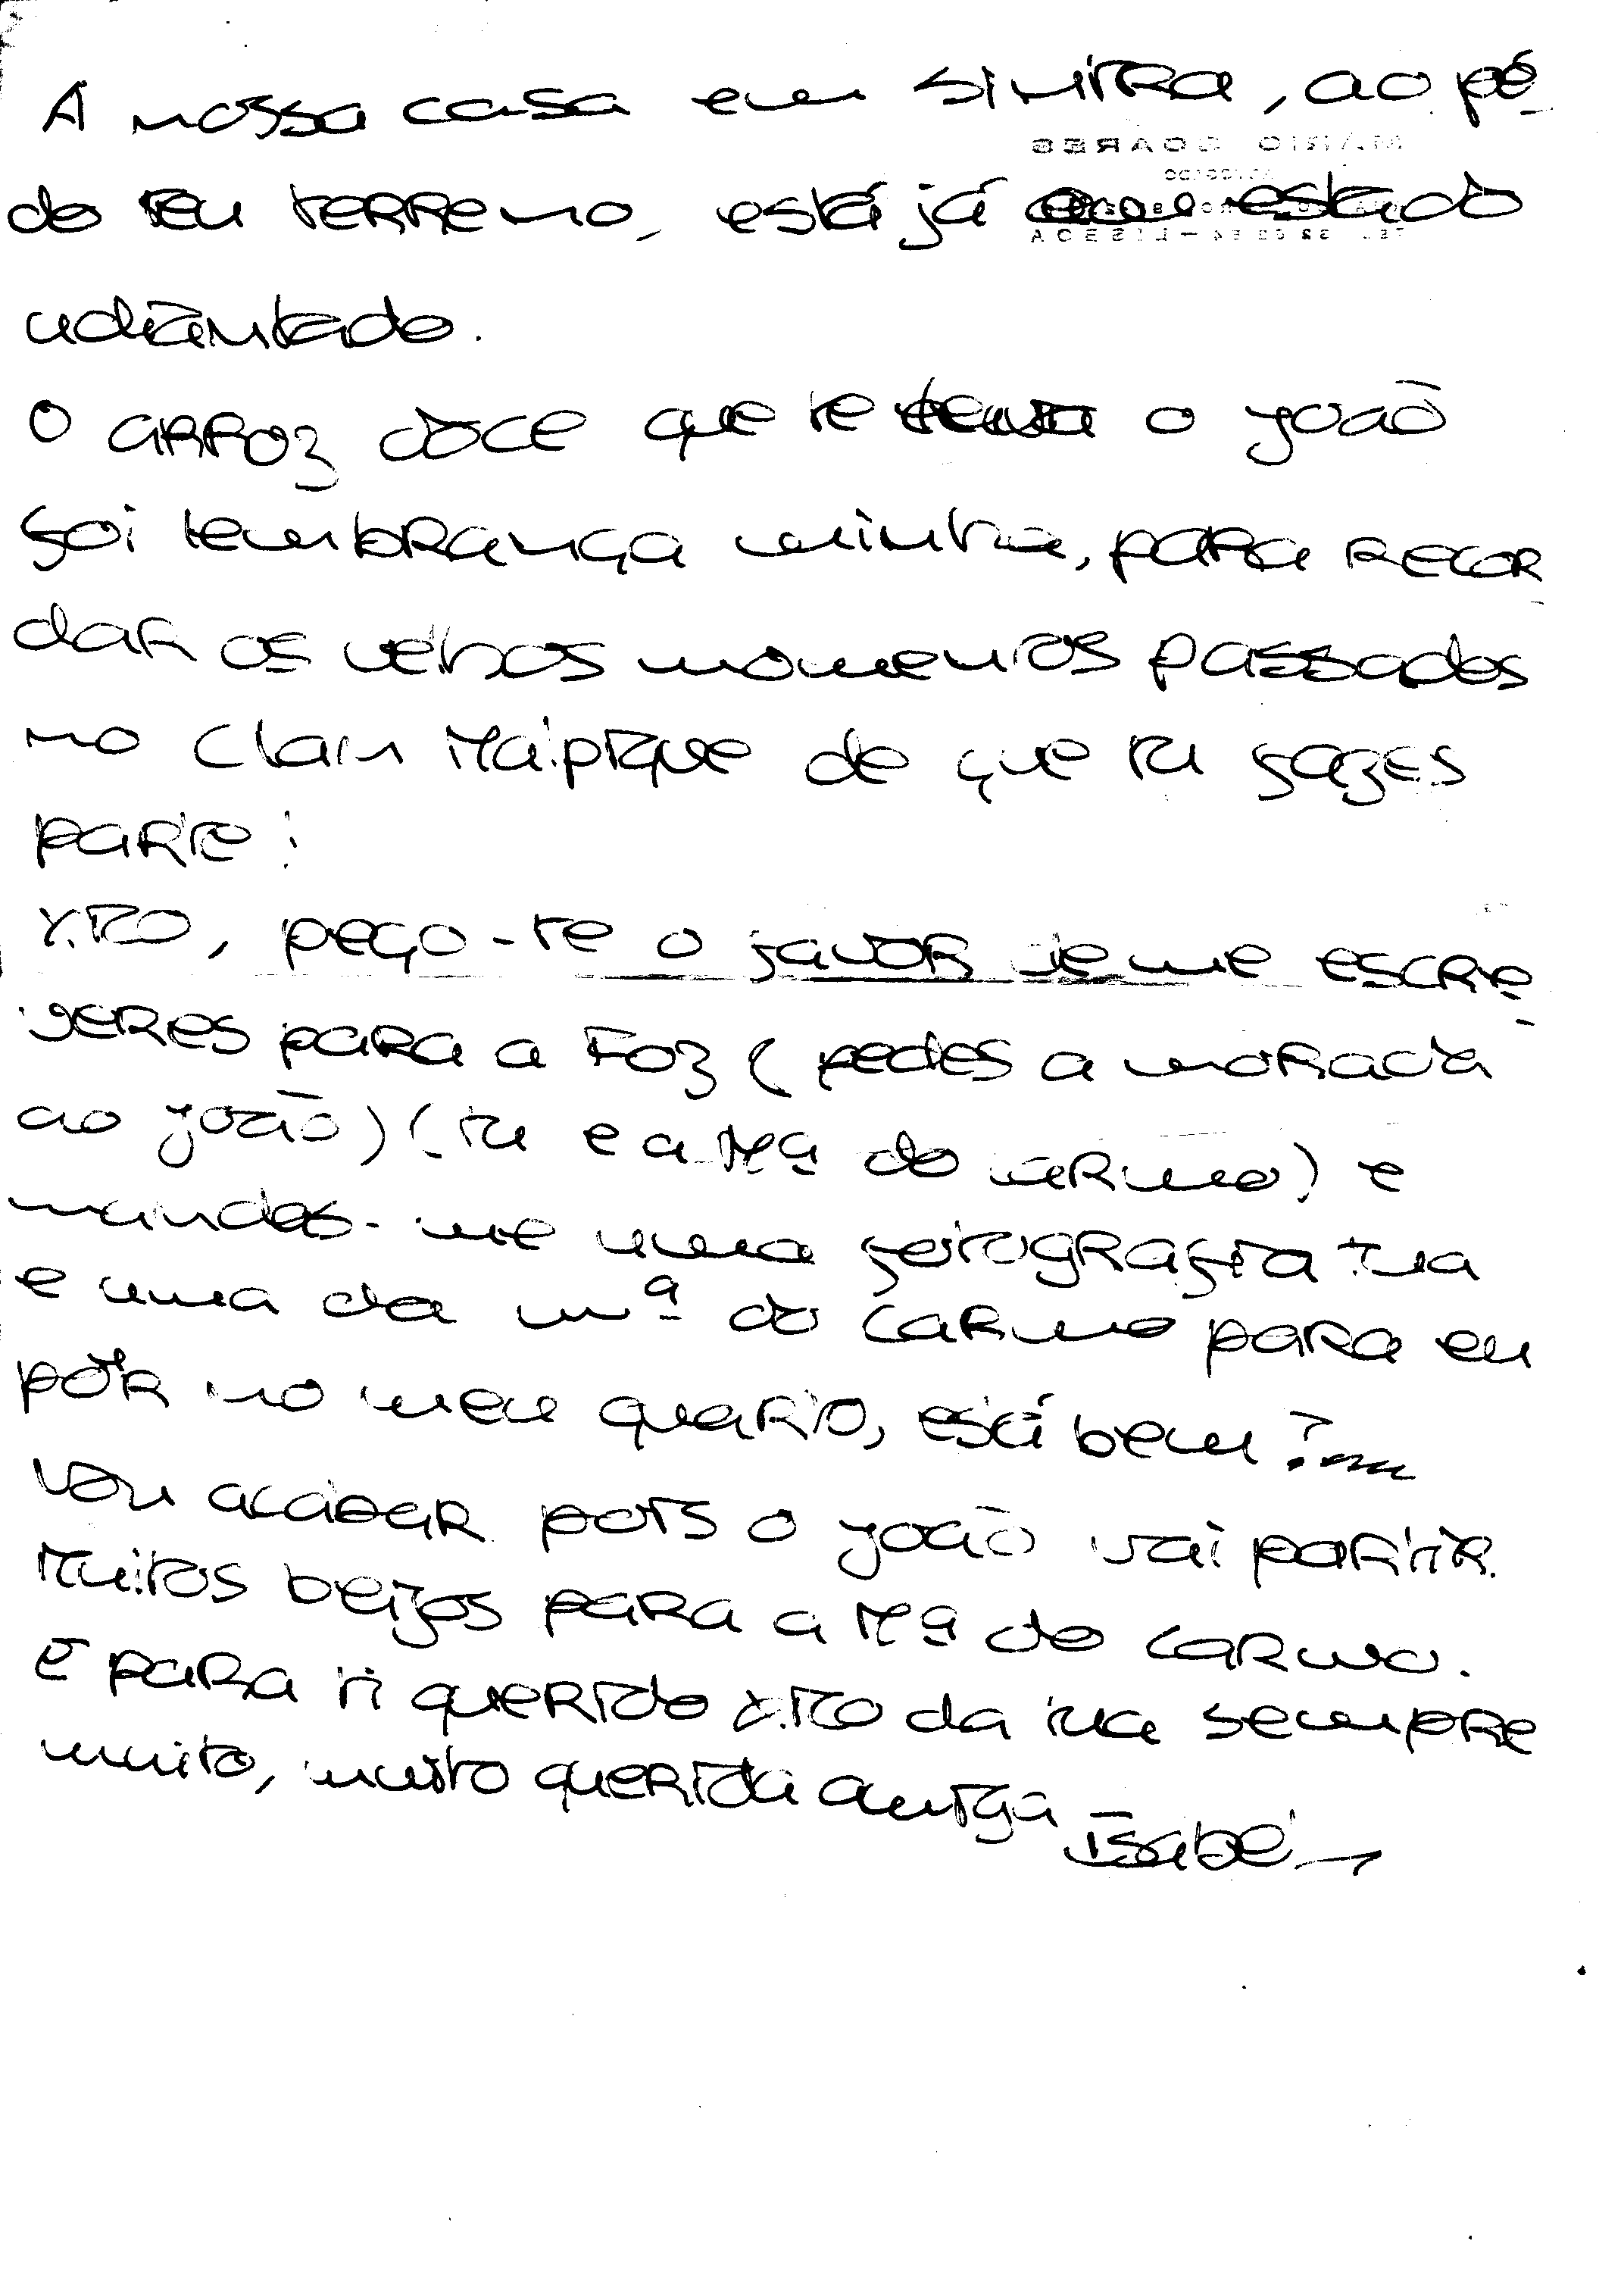 A nossa casa em Sintra, ao pé
do teu terreno, está já em estado
adiantado.
O arroz doce que te leva o João
foi lembrança minha, para recor
dar os velhos momentos passados
no Clan Maipique de que tu fazes
parte!
Xico, peço-te o favor de me escre-
veres para a Foz (pedes a morada
ao João) (tu e a Mª do Carmo) e
mandes-me uma fotografia tua
e uma da mª do Carmo para eu
pôr no meu quarto, está bem?
Vou acabar pois o João vai partir.
Muitos beijos para a Mª do Carmo.
E para ti querido Xico da tua sempre
muito, muito querida amiga
Isabé
MÁRIO SOARES
ADVOGADO
LISBOA